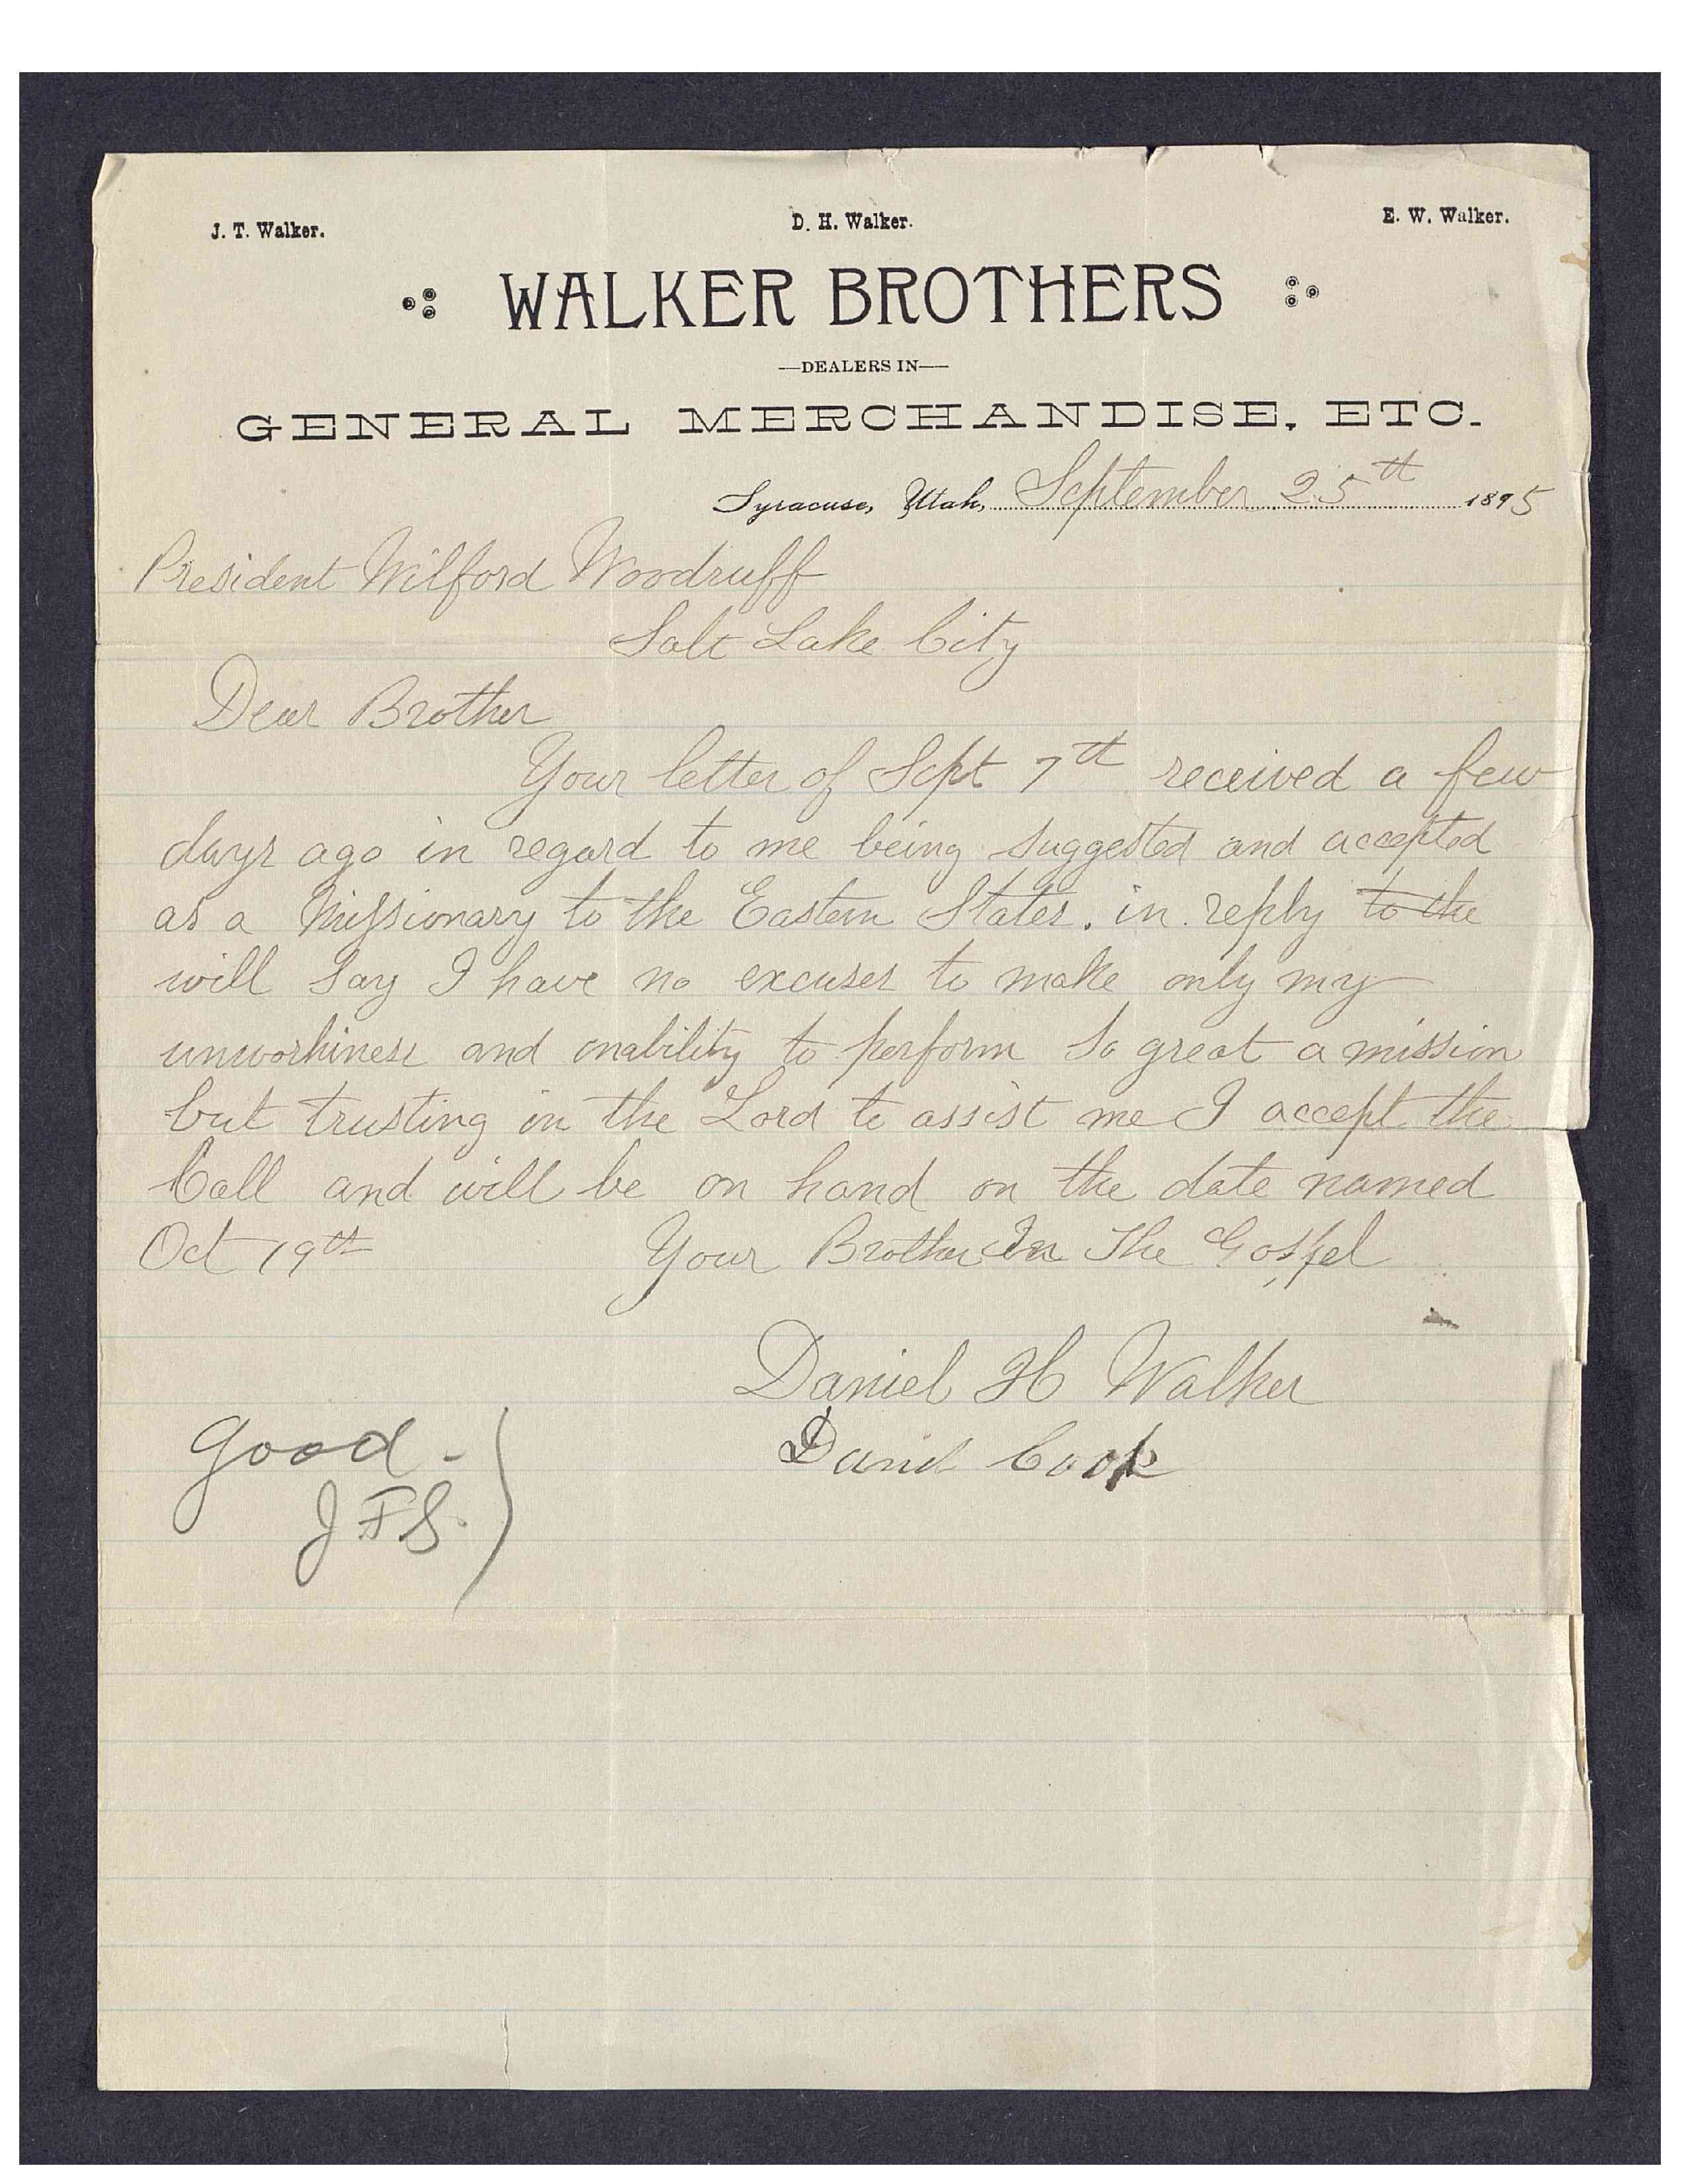 J. T. Walker. D. H. Walker. E. W. Walker.
WALKER BROTHERS
—DEALERS IN—
GENERAL MERCHANDISE, ETC.
Syracuse, Utah, September 25th 1895
President Wilford Woodruff
Salt Lake City
Dear Brother
Your letter of Sept 7th received a few
days ago in regard to me being suggested and accepted
as a Missionary to the Eastern States. in reply to the
will say I have no excuses to make only my
unworhiness and inability to perform so great a mission
but trusting in the Lord to assist me I accept the
Call and will be on hand on the date named
Oct 19th Your Brother In The Gospel
Daniel H Walker
David Cook
Good.
J F S.